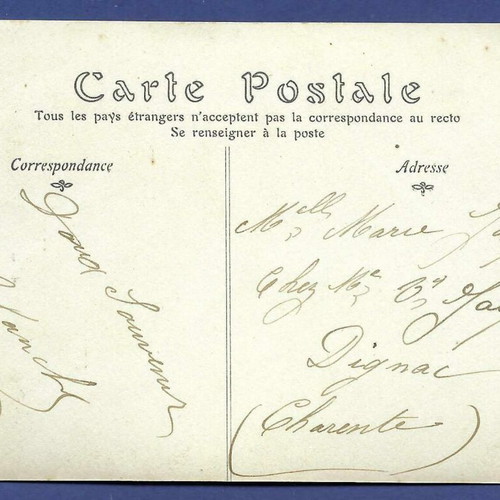 Carte Postale
Tous les pays étrangers n'acceptent pas la correspondance au recto
Se renseigner à la poste
Correspondance
Adresse
Doux Souvenir
Mlle Marie
Chez Mr
Dignac
(Charente)